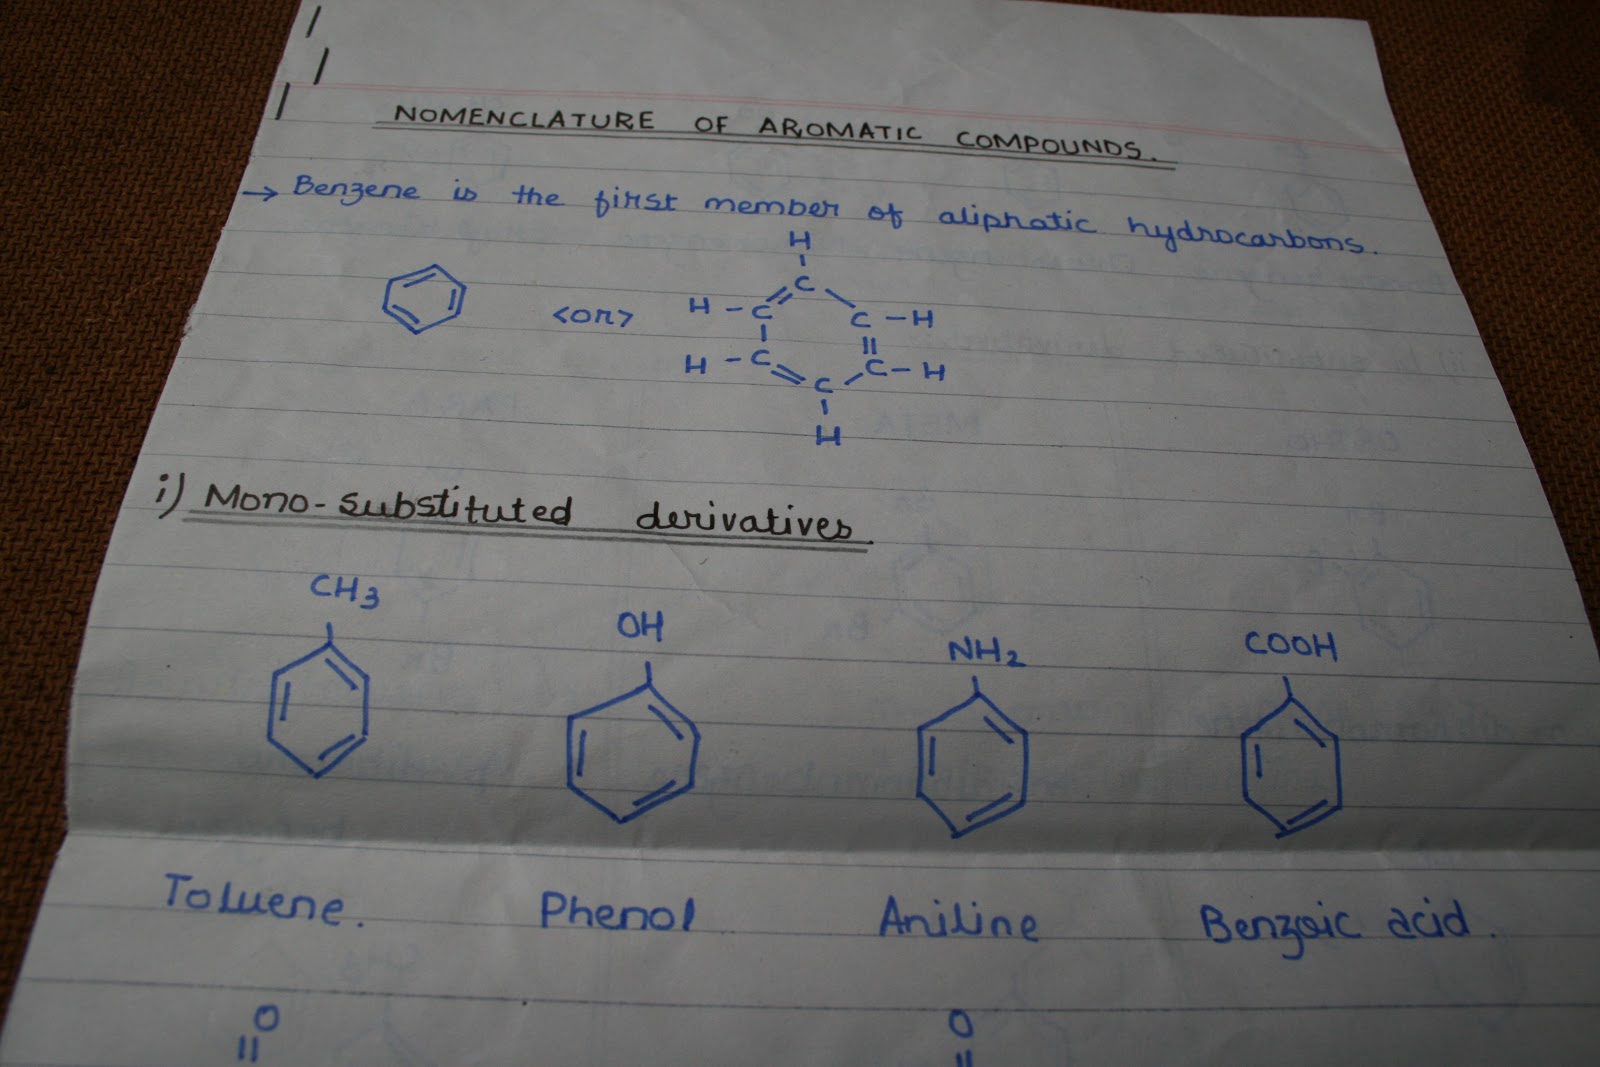 NOMENCLATURE OF AROMATIC COMPOUNDS.
→ Benzene is the first member of aliphatic hydrocarbons.
<or>
H
C
H - C C - H
H - C C - H
C
H
i) Mono-substituted derivatives.
CH3 OH NH2 COOH
Toluene. Phenol Aniline Benzoic acid.
O O